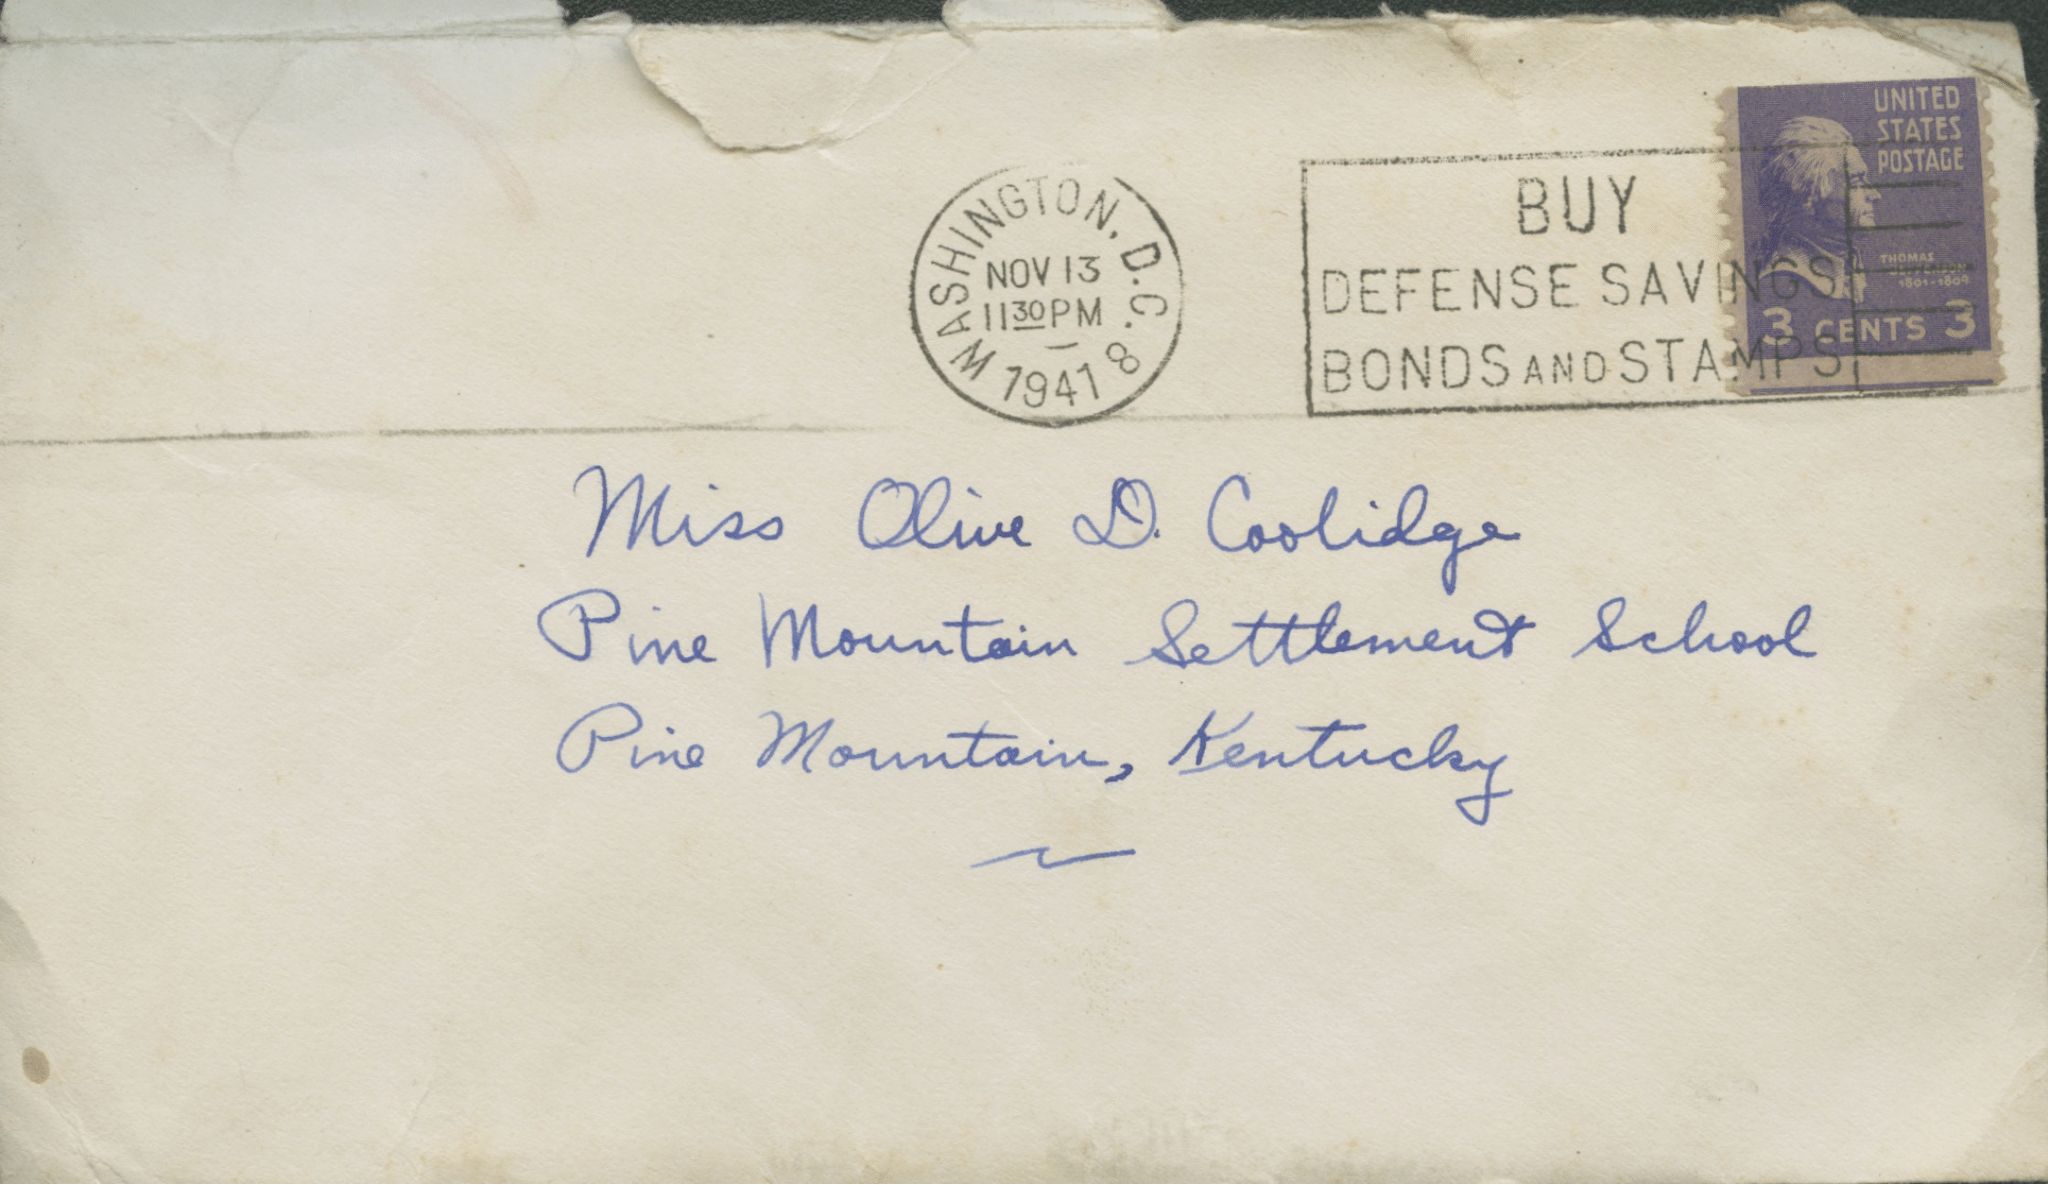 WASHINGTON, D.C. 8
NOV 13
11 30 PM
1941
BUY
DEFENSE SAVINGS
BONDS AND STAMPS
UNITED
STATES
POSTAGE
THOMAS
JEFFERSON
1801-1809
3 CENTS 3
Miss Olive D. Coolidge
Pine Mountain Settlement School
Pine Mountain, Kentucky